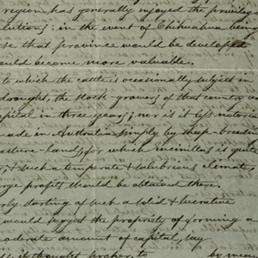 region has generally enjoyed the privilege
lutions; in the event of Chihuahua being
se that province would be developed
ould become more valuable.
to which the cattle is occasionally subject in
drought, the stock grown of that country ca
capital in three years; nor is it less notori
made in Australia simply by sheep-breedin
asture-land, for which incinillas is quite
r; & such a temperate & salubrious climate,
arge profits should be obtained there.
ly starting of such a solid & lucrative
would suggest the propriety of forming a
moderate amount of capital, say
ss it thought proper to by mean